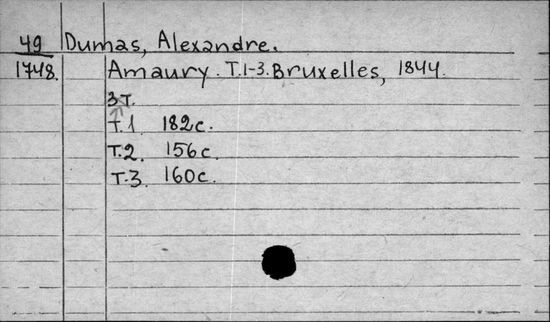 49 Dumas, Alexandre.
1748. Amaury. T.1-3. Bruxelles, 1844.
3т.
Т.1 182с.
Т.2. 156с.
Т.3. 160с.